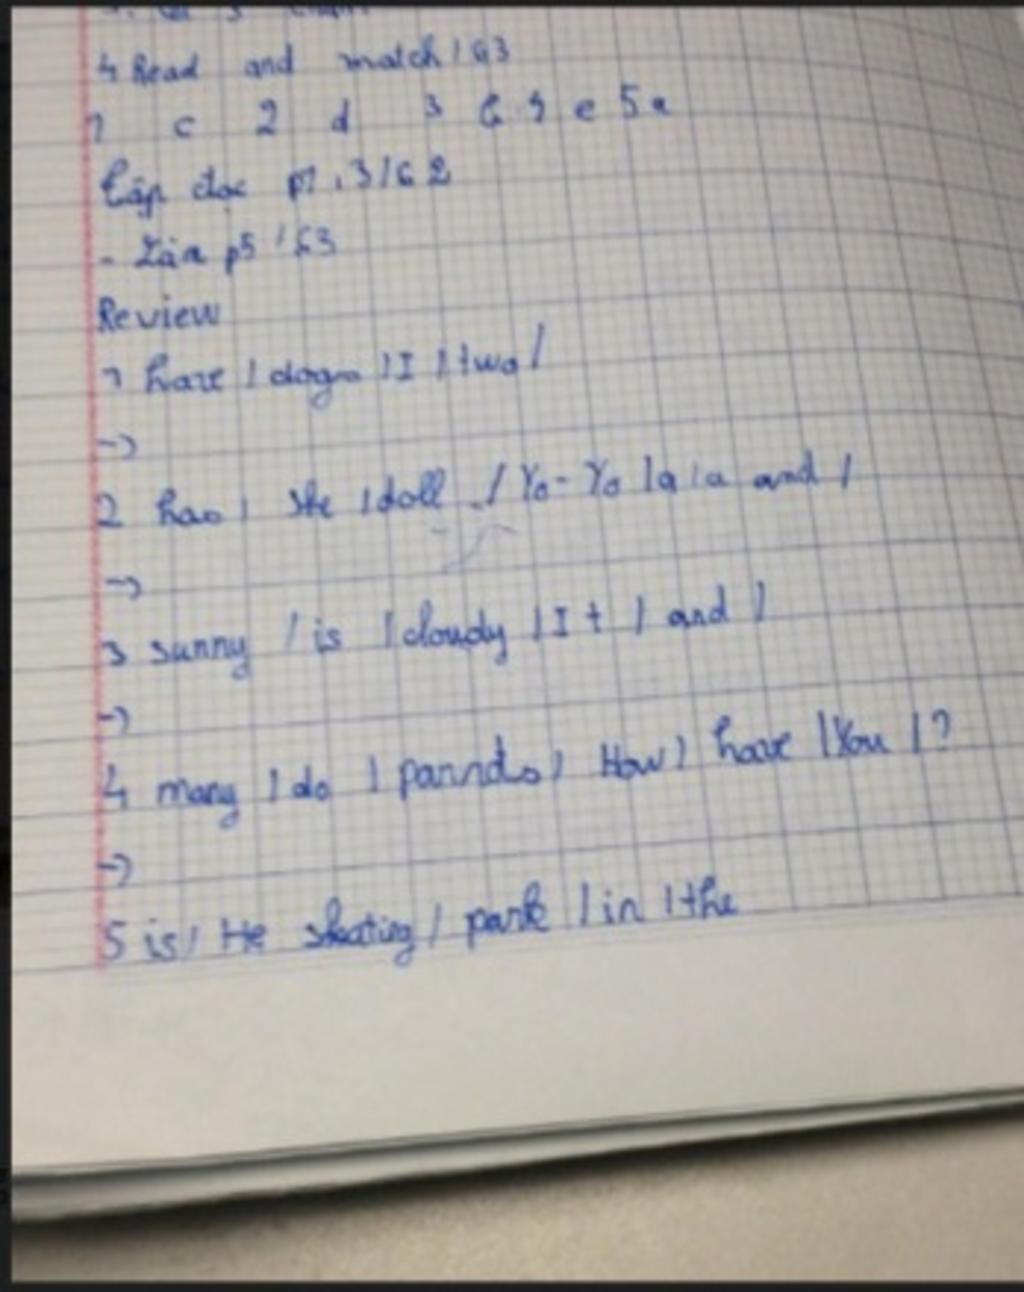 4 Read and match / 63
1 c 2 d 3 b 4 e 5 a
Tập đọc p1, 3 / 62
- Làm p5 / 63
Review
1 have / dogs / I / two /
->
2 has / She / doll / Yo-Yo / a / a and /
->
3 sunny / is / cloudy / It / and /
->
4 many / do / parrots / How / have / You / ?
->
5 is / He skating / park / in / the